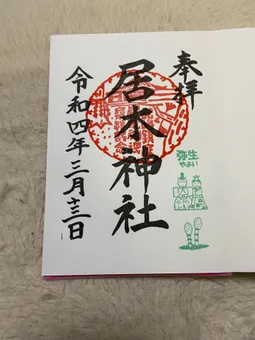 奉拝
居木神社
弥生
やよい
令和四年三月十三日